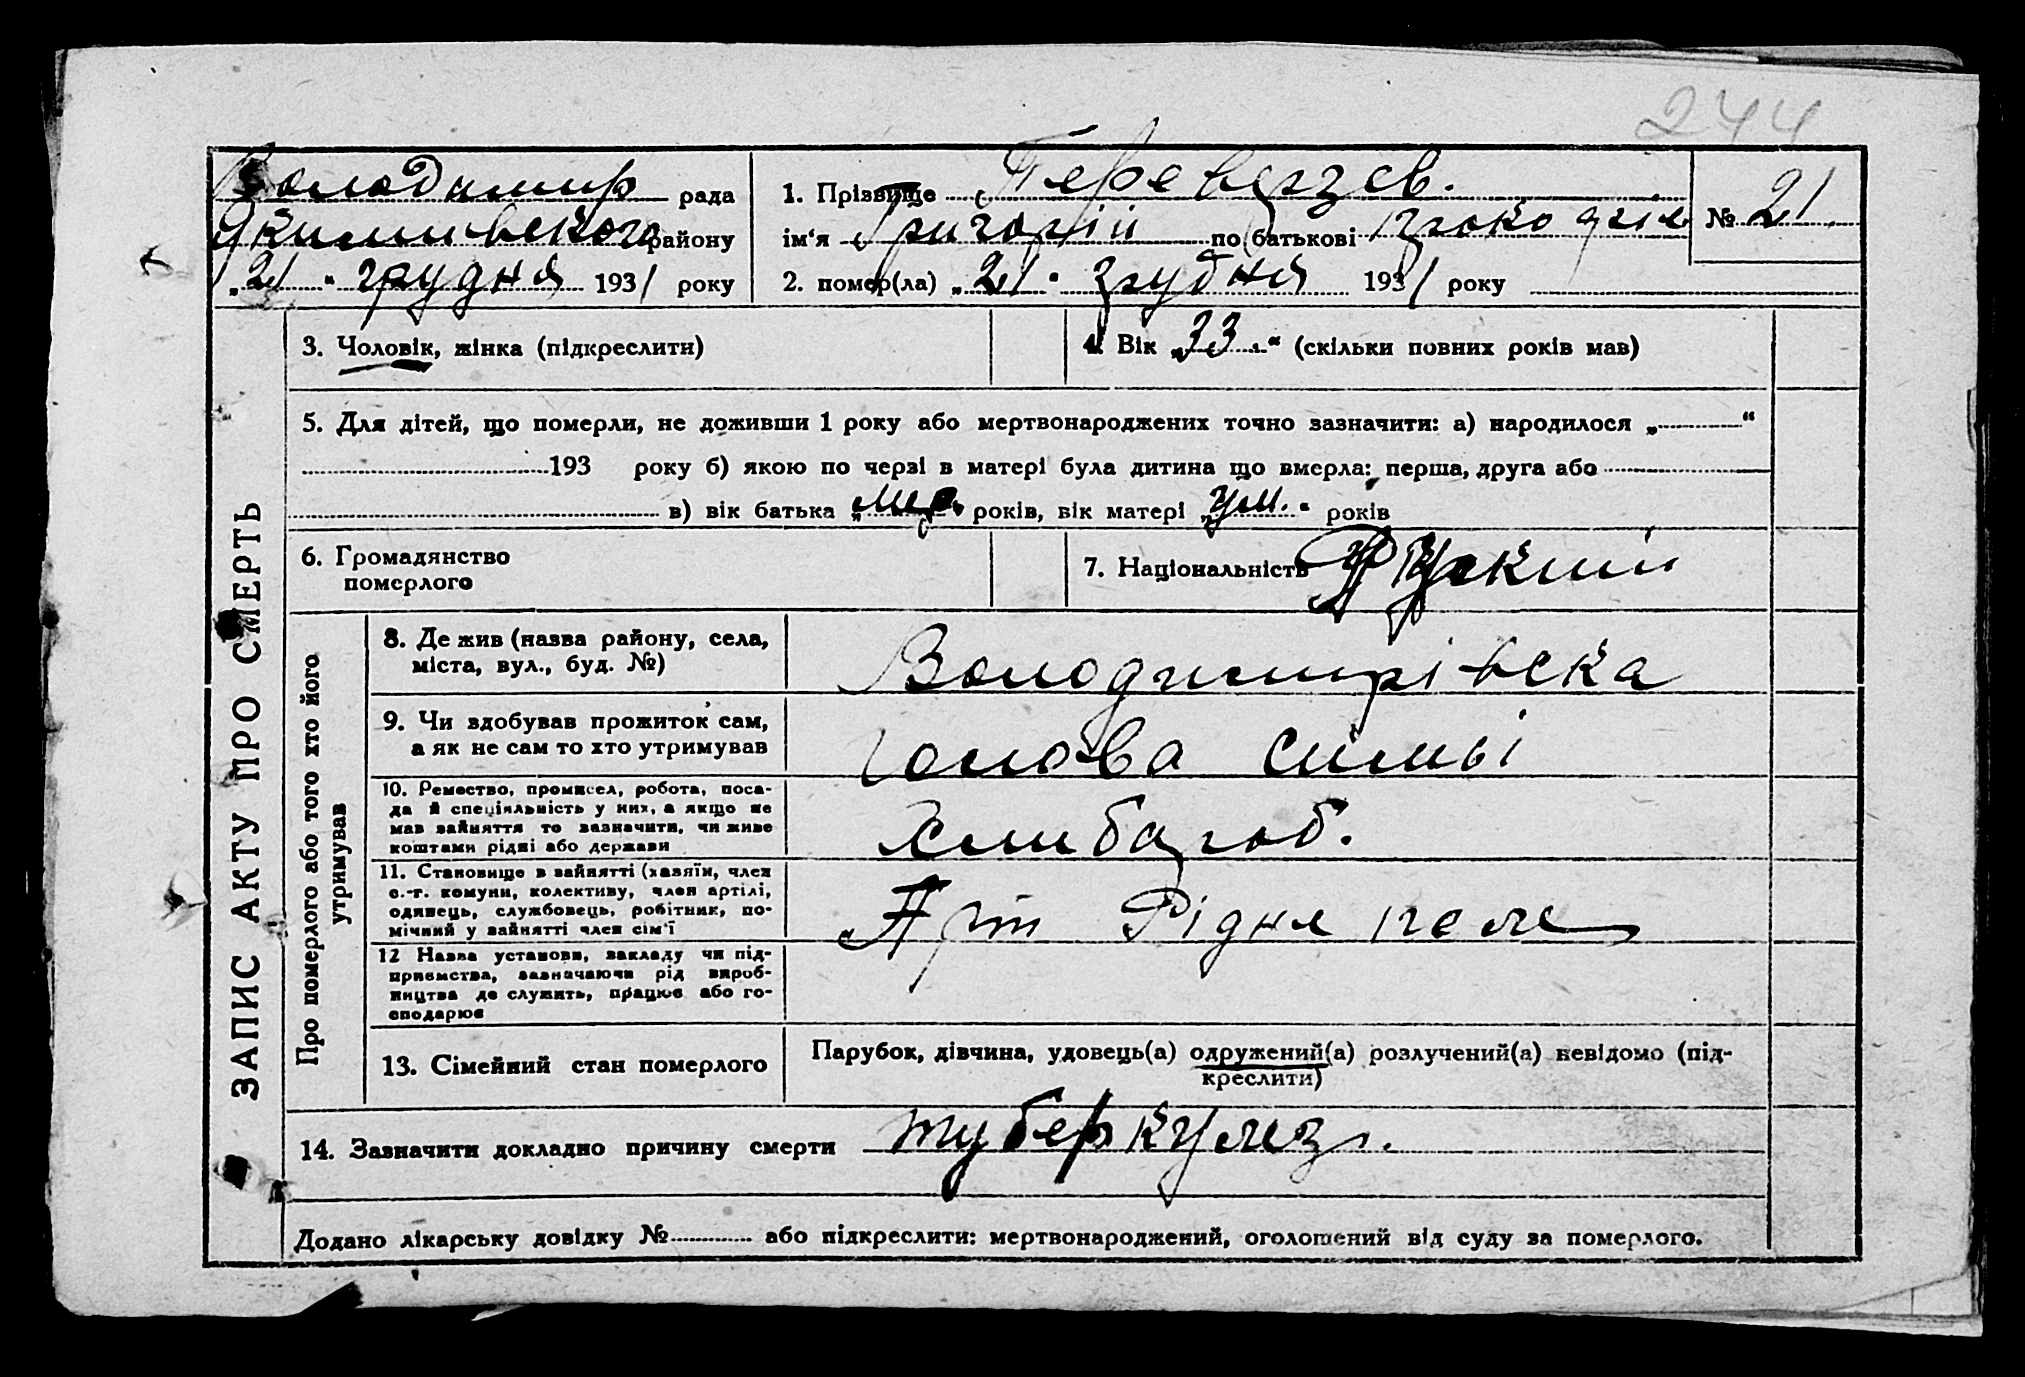 244
Володимир рада
Якимивського району
„21“ грудня 1931 року
1. Прізвище Переверзев.
ім‘я Григорій по батькові
2. помер(ла) „21“ грудня 1931 року
№ 21
ЗАПИС АКТУ ПРО СМЕРТЬ
3. Чоловік, жінка (підкреслити)
4. Вік „33“ (скільки повних років мав)
5. Для дітей, що померли, не доживши 1 року або мертвонароджених точно зазначити: а) народилося „ “
193 року б) якою по черзі в матері була дитина що вмерла: перша, друга або
в) вік батька „ “ років, вік матері „ум.“ років
6. Громадянство
померлого
7. Національність Руский
Про померлого або того хто його
утримував
8. Де жив (назва району, села,
міста, вул., буд. №)
Володимирівска
9. Чи здобував прожиток сам,
а як не сам то хто утримував
голова симьі
10. Ремество, промисел, робота, поса-
да й спеціяльність у них, а якщо не
мав зайняття то зазначити, чи живе
коштами рідні або держави
Хлибароб.
11. Становище в зайнятті (хазяїн, член
с.-г. комуни, колективу, член артілі,
одинець, службовець, робітник, по-
мічний у зайнятті член сім‘ї
Арт Рідне поле
12 Назва установи, закладу чи під-
приємства, зазначаючи рід вироб-
ництва де служить, працює або го-
сподарює
13. Сімейний стан померлого
Парубок, дівчина, удовець(а) одружений(а) розлучений(а) невідомо (під-
креслити)
14. Зазначити докладно причину смерти туберкулез.
Додано лікарську довідку № або підкреслити: мертвонароджений, оголошений від суду за померлого.